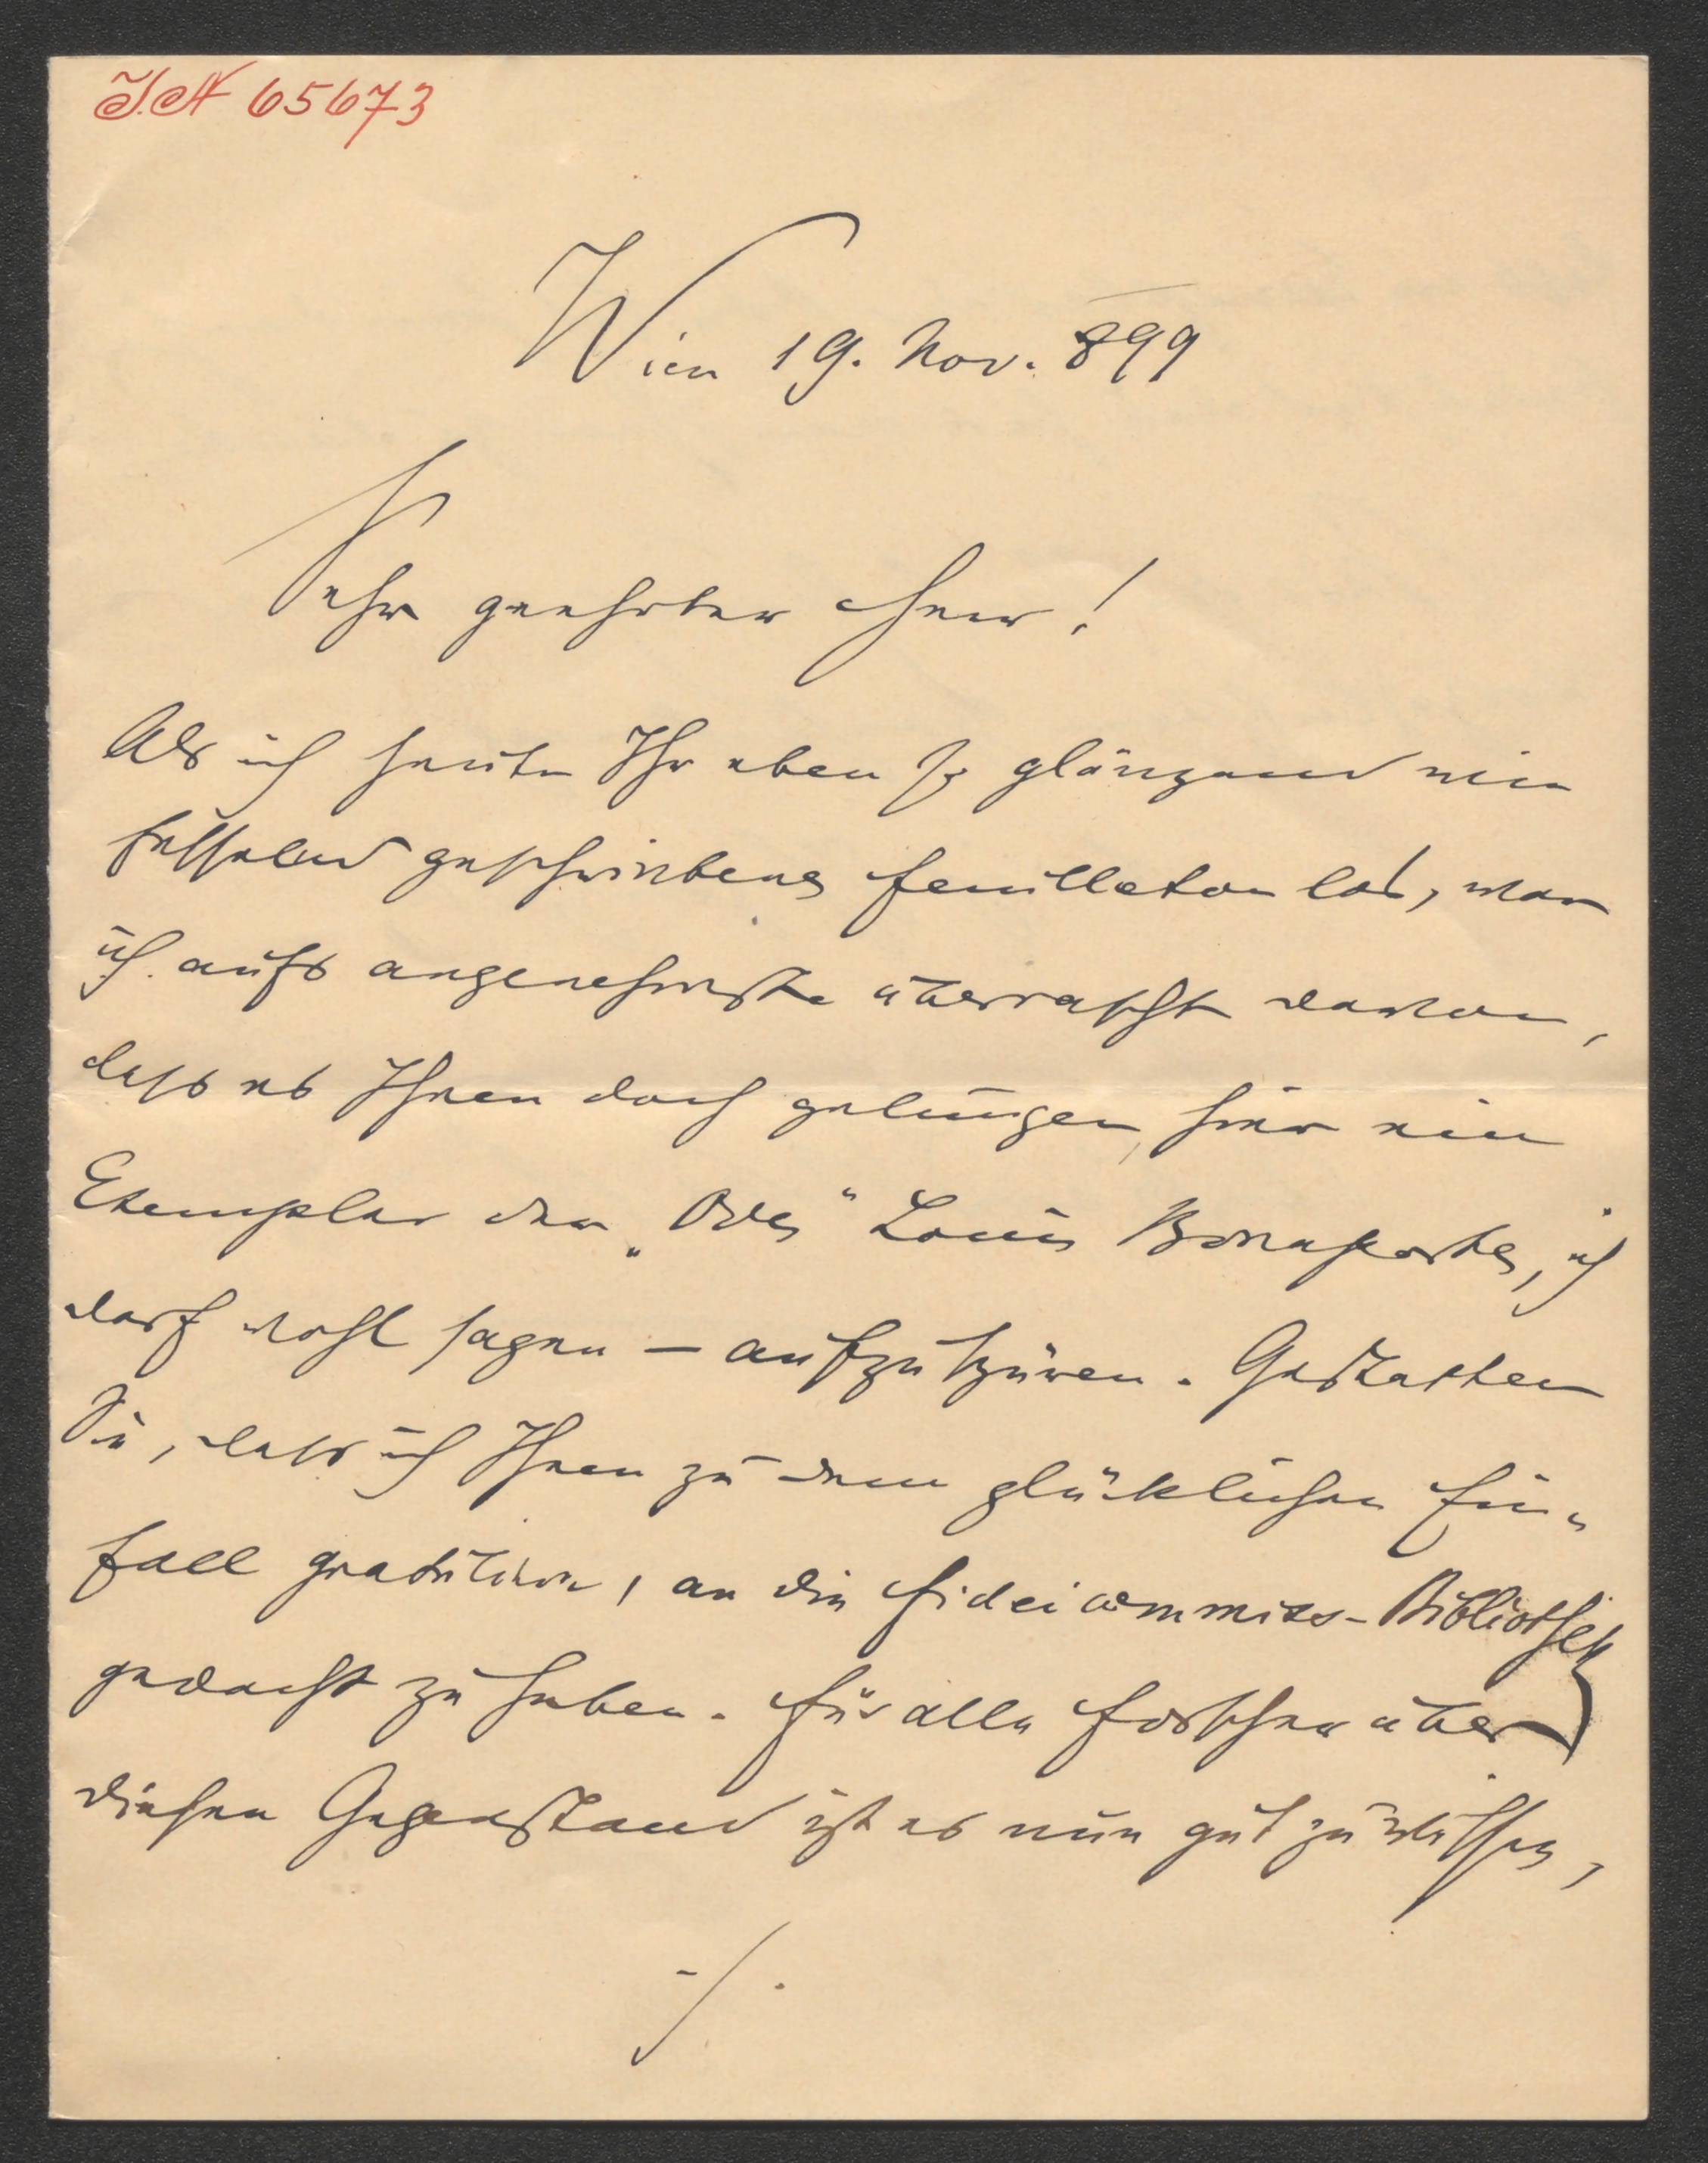 I.N 65673
Wien 19. Nov. 899
Sehr geehrter Herr!
Als ich heute Ihr eben so glänzend wie
fesselnd geschriebenes Feuilleton las, war
ich aufs angenehmste überrascht davon,
dass es Ihnen doch gelungen, hier ein
Exemplar der „Odes“ Louis Bonapartes, ich
darf wohl sagen – aufzustüren. Gestatten
Sie, dass ich Ihnen zu dem glücklichen Ein-
fall gratuliere, an die Fideicommiss-Bibliothek
gedacht zu haben. Für alle Forscher über
diesen Gegenstand ist es nun gut zu wissen,
-/.